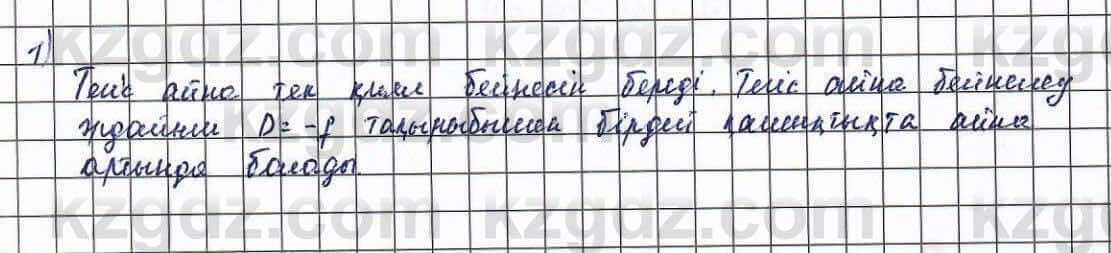 1)
Теніс айна тек қиял бейнесін береді. Теніс айна бейнелеу
жағдайын D = -f тақырыбымен бірдей қашықтықта айна
артында болады.
kzgdz.com kzgdz.com kzg
kzgdz.com kzgdz.com kzg
kzgdz.com kzgdz.com kzg